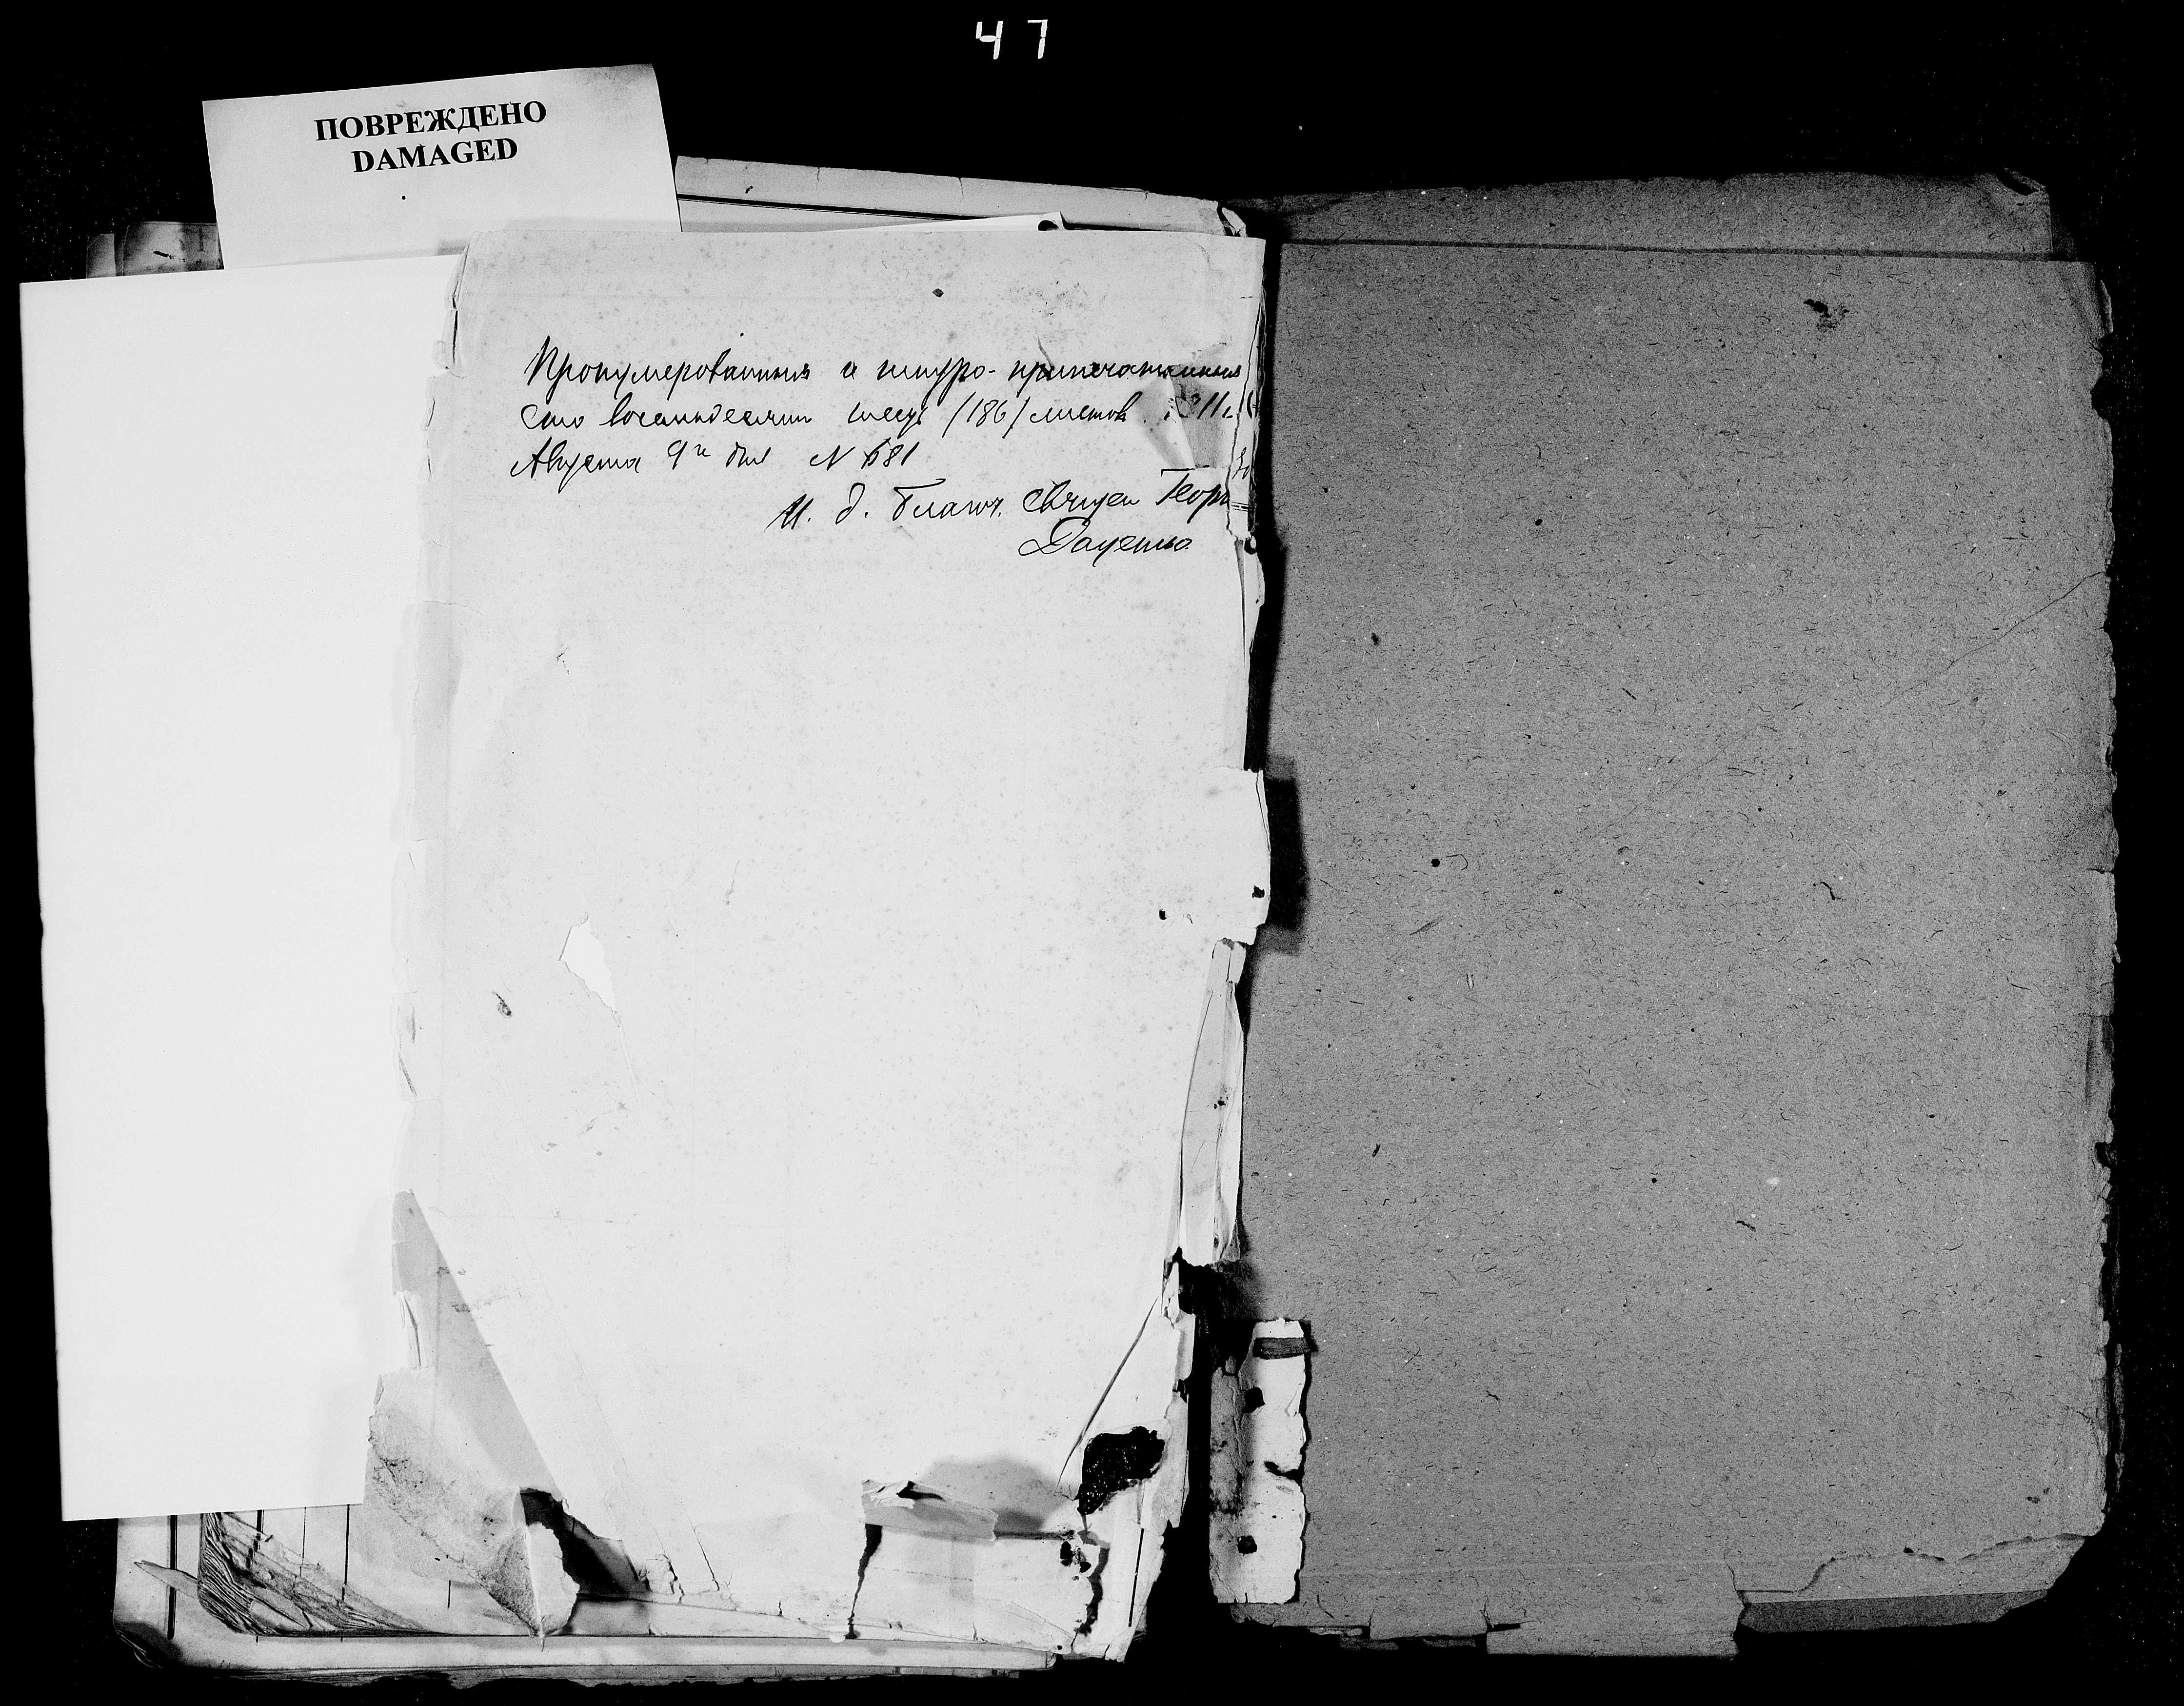 47
ПОВРЕЖДЕНО
DAMAGED
Пронумерованныхъ и шнуро-припечатанныхъ
сто восемьдесятъ шесть (186) листовъ. 1911 г.
Августа 9 дня № 681
И. д. Благоч. Священ Георг
Даценко